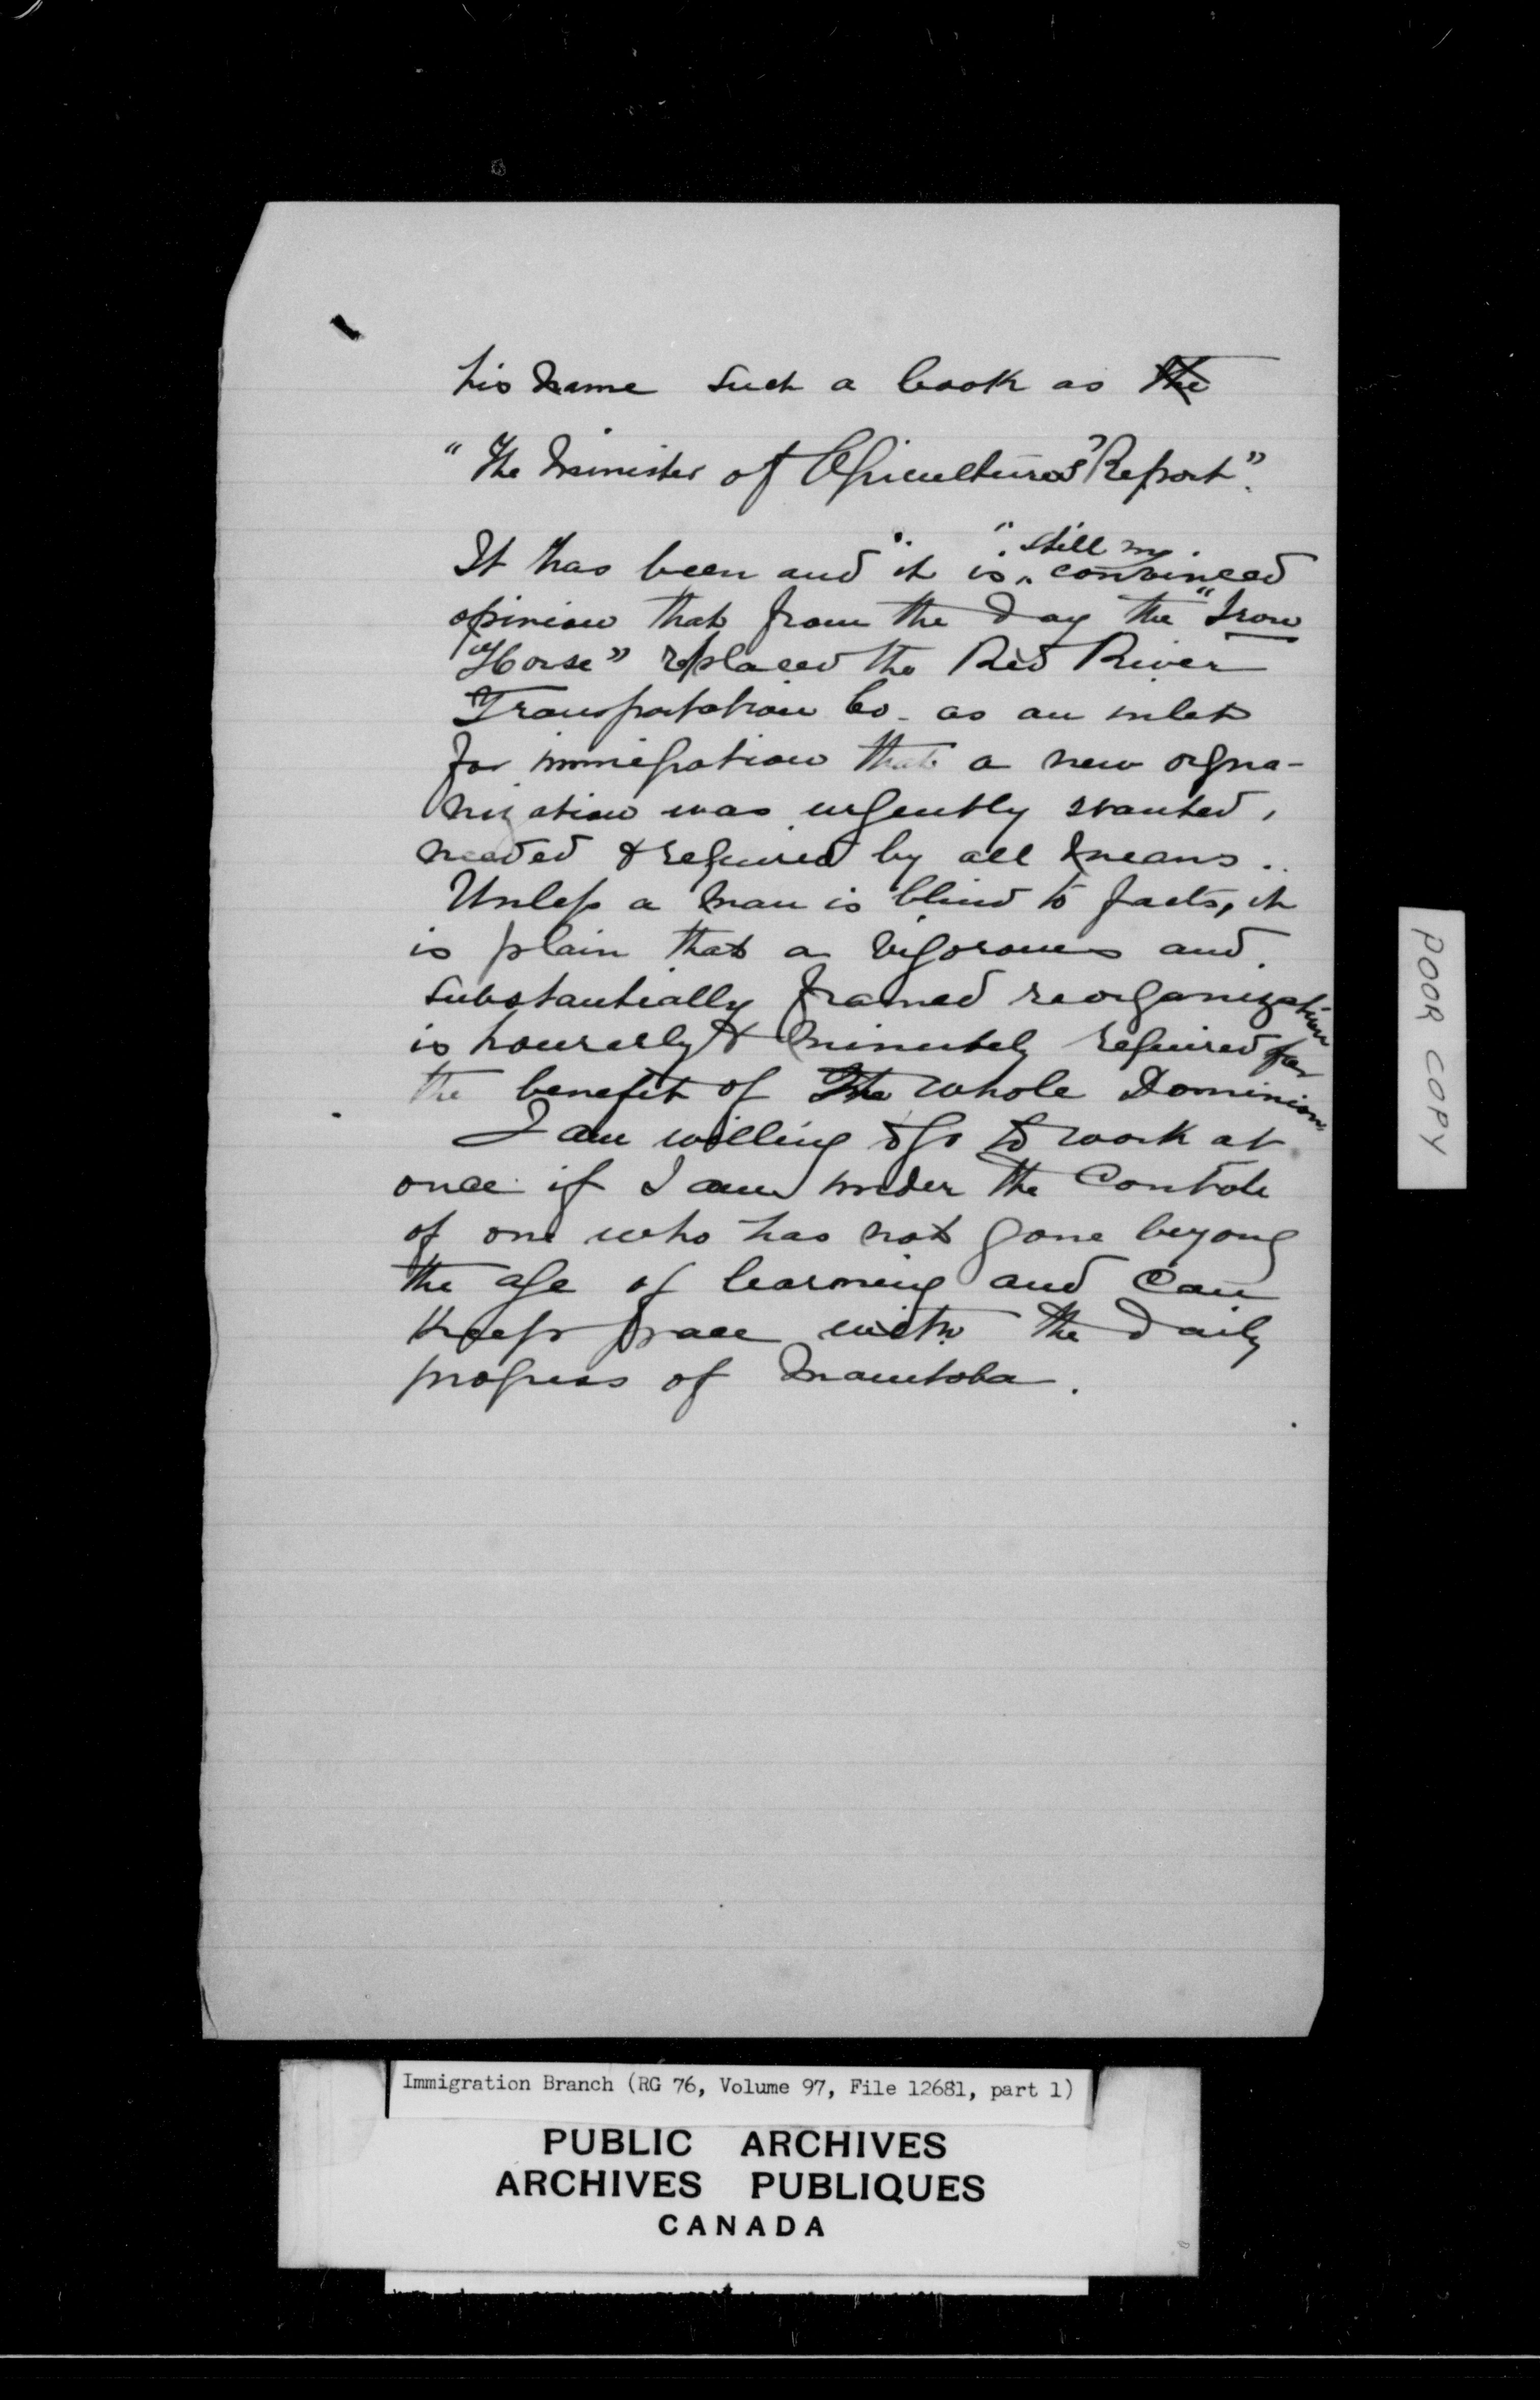 his name such a book as the
"The Minister of Agriculture's Report".
It has been and it is still my convinced
opinion that from the day the "Iron
Horse" replaced the Red River
Transportation Co. as an inlet
for immigration that a new orgna-
nization was urgently wanted,
needed & required by all means.
Unless a man is blind to facts, it
is plain that a vigorous and
substantially framed reorganization
is hourerly & minutely required for
the benefit of the whole Dominion.
I am willing to go to work at
once if I am under the Controle
of one who has not gone beyong
the age of learning and can
keep prace with the daily
progress of Manitoba.
POOR COPY
Immigration Branch (RG 76, Volume 97, File 12681, part 1)
PUBLIC ARCHIVES
ARCHIVES PUBLIQUES
CANADA